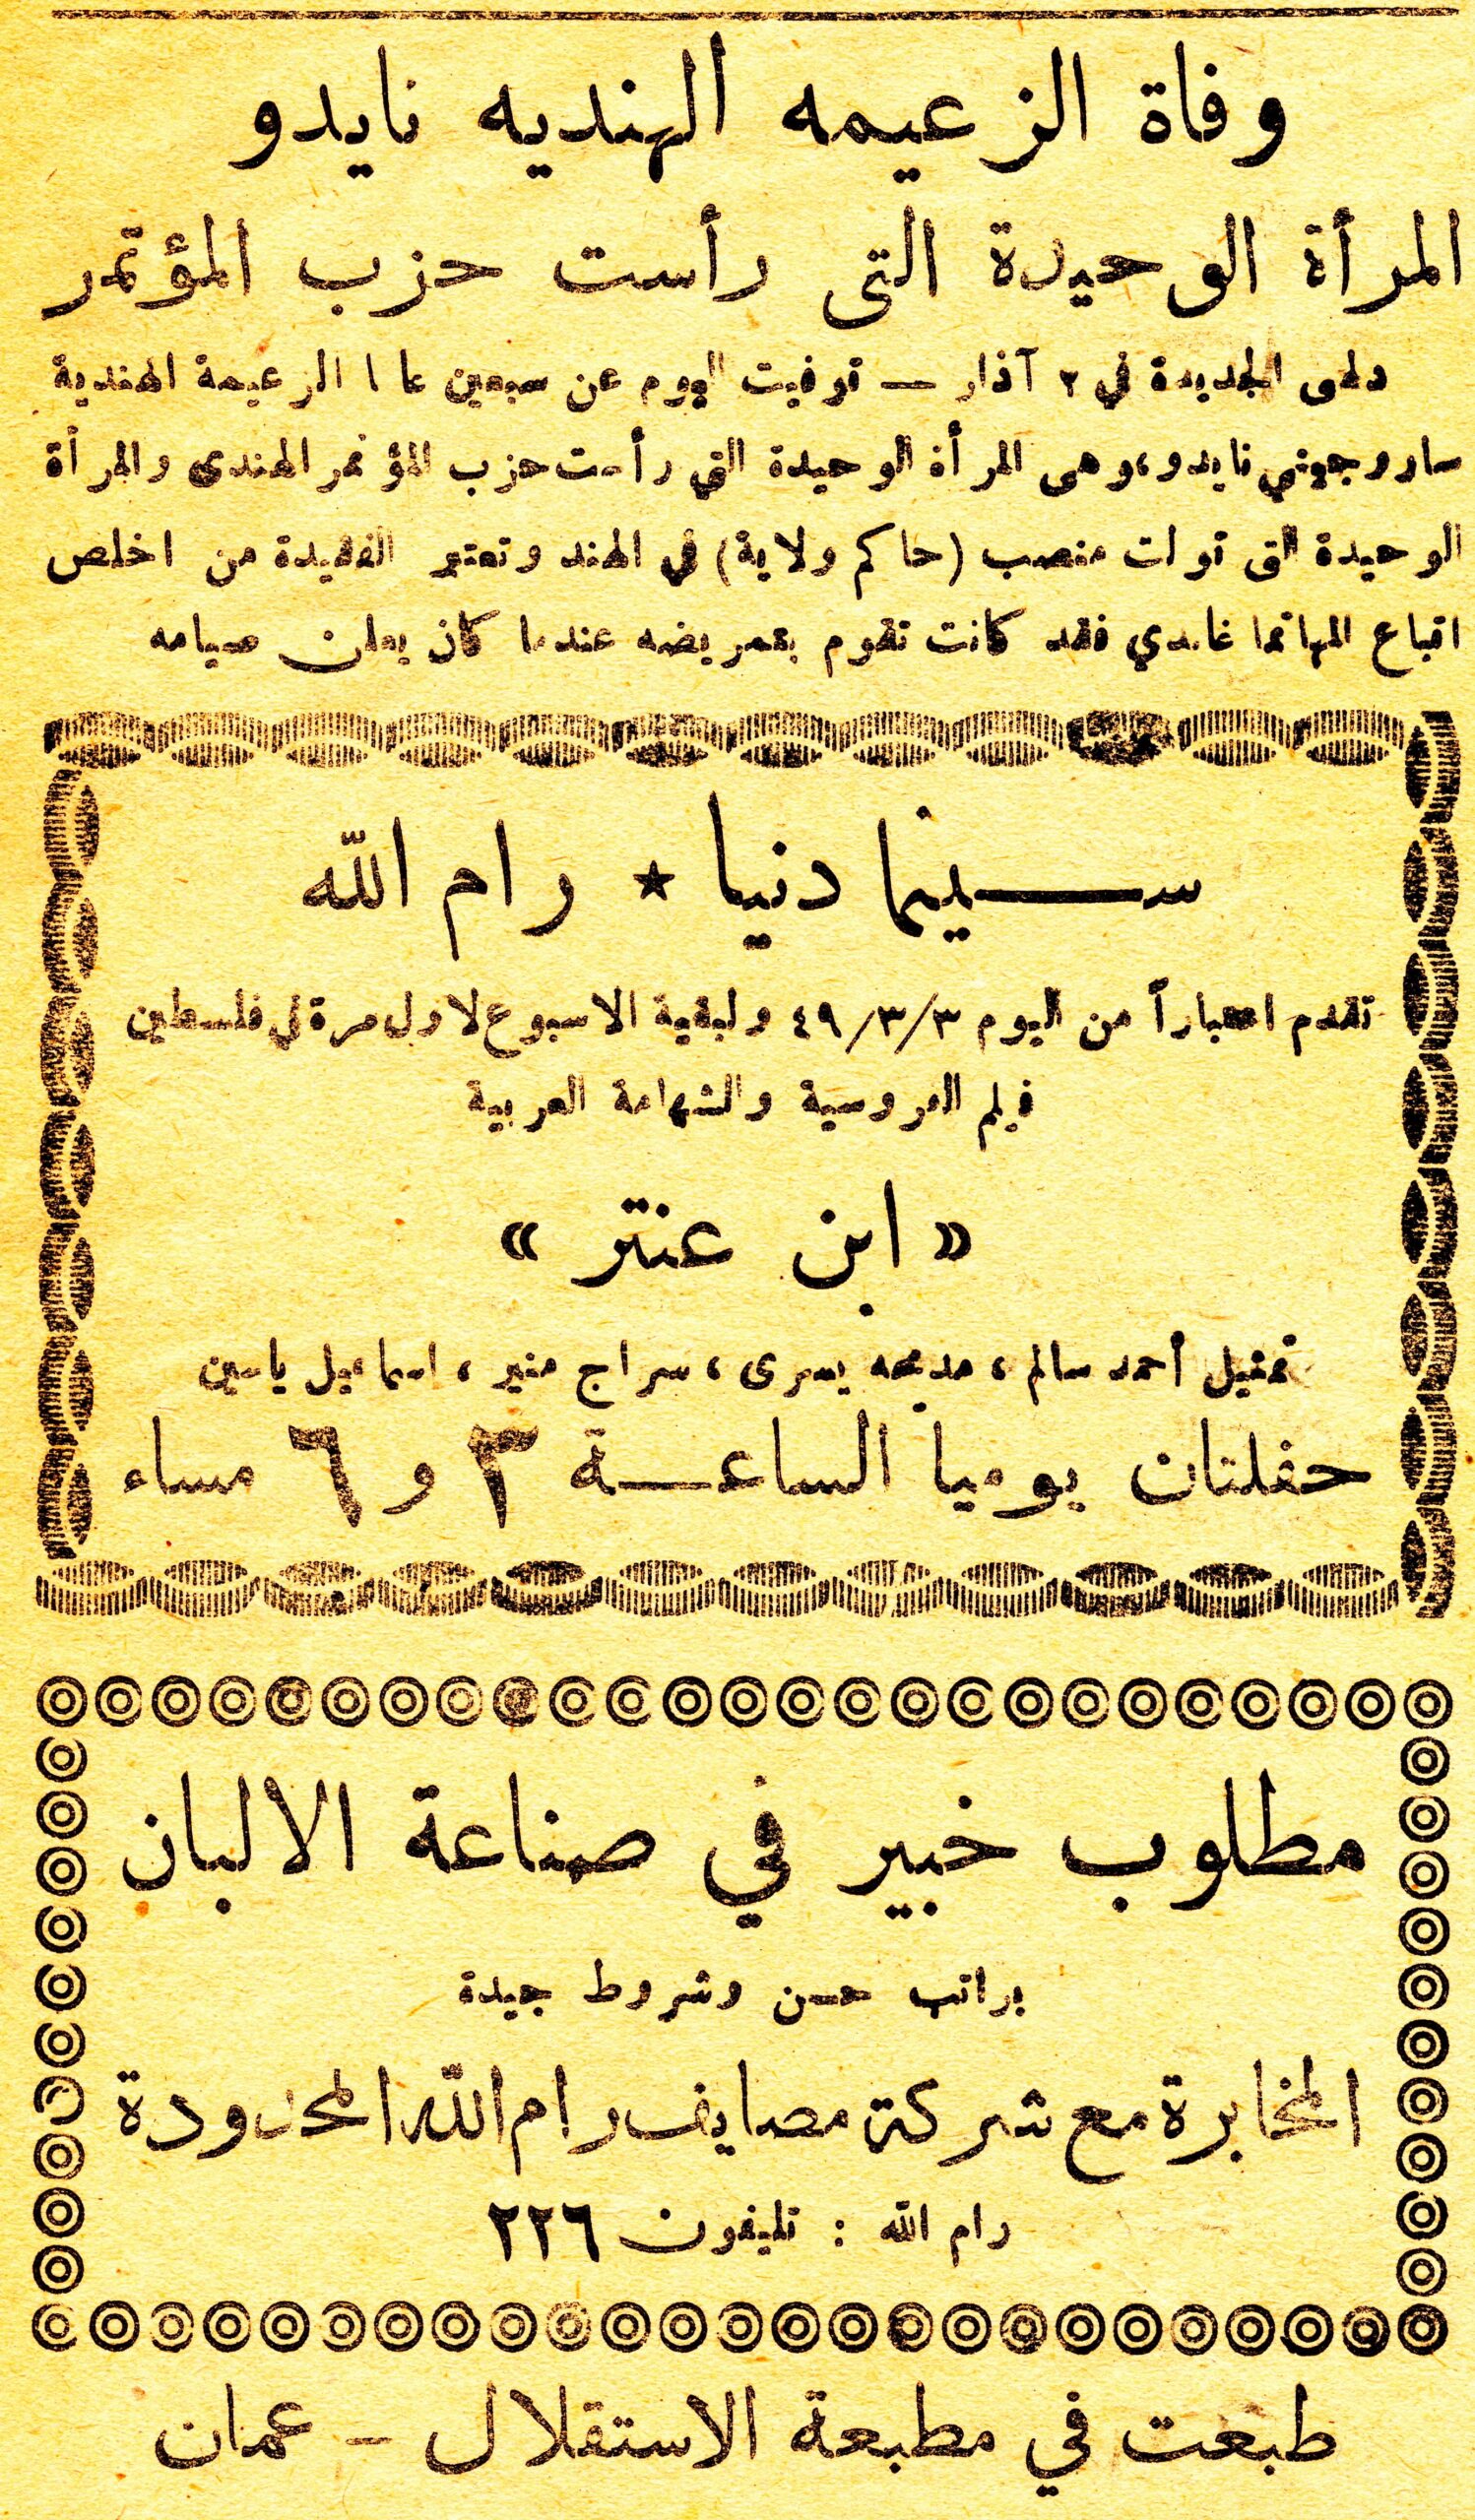 وفاة الزعيمه الهنديه نايدو
المرأة الوحيدة التى رأست حزب المؤتمر
دلهى الجديدة في ٢ آذار — توفيت اليوم عن سبعين عاما الزعيمة الهندية
ساروجيني نايدو، وهى المرأة الوحيدة التي رأست حزب المؤتمر الهندى والمرأة
الوحيدة التى تولت منصب (حاكم ولاية) في الهند وتعتبر الفقيدة من اخلص
اتباع المهاتما غاندي فقد كانت تقوم بتمريضه عندما كان يعلن صيامه
سينما دنيا ★ رام الله
تقدم اعتباراً من اليوم ٤٩/٣/٣ ولبقية الاسبوع لاول مرة في فلسطين
فيلم الفروسية والشهامة العربية
« ابن عنتر »
تمثيل أحمد سالم ، مديحه يسرى ، سراج منير ، اسماعيل ياسين
حفلتان يوميا الساعة ٣ و ٦ مساء
مطلوب خبير في صناعة الالبان
براتب حسن وشروط جيدة
المخابرة مع شركة مصايف رام الله المحدودة
رام الله : تليفون ٢٢٦
طبعت في مطبعة الاستقلال – عمان